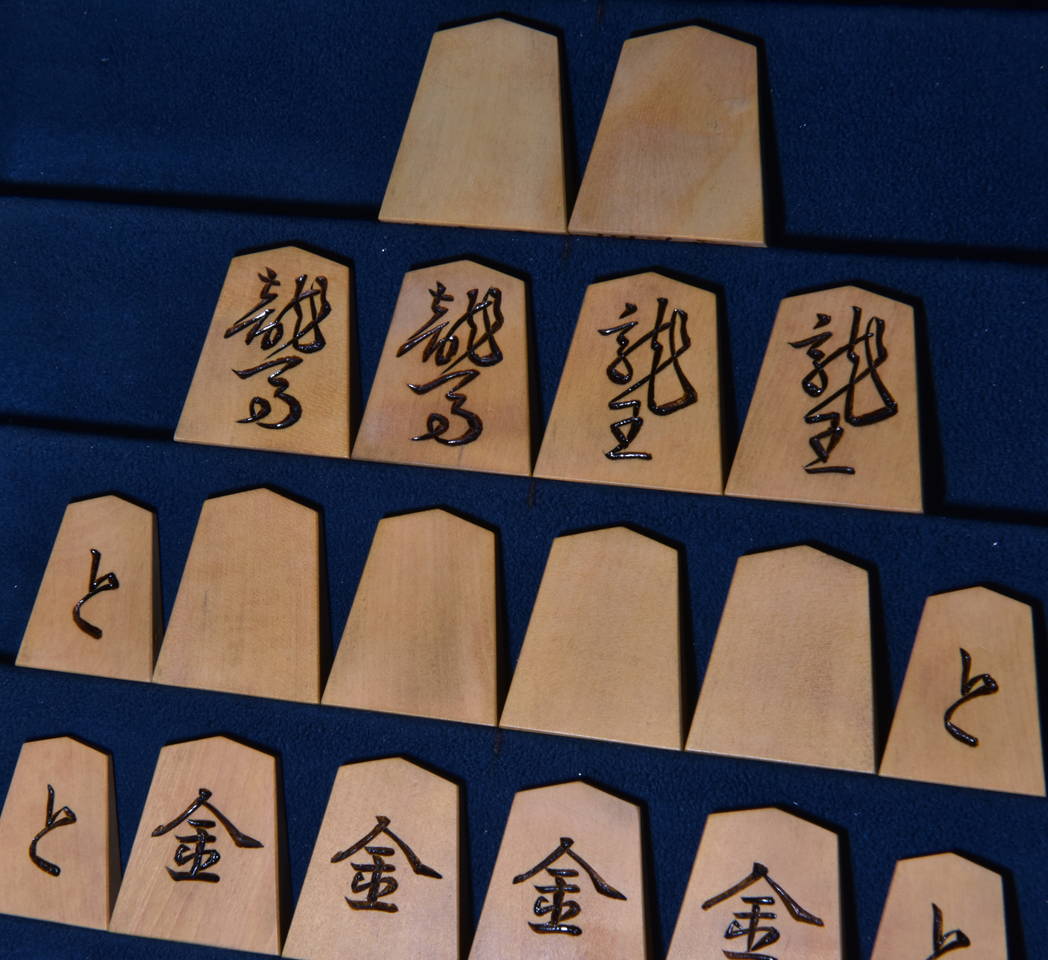 龍馬 龍馬 龍王 龍王
と と
と 金 金 金 金 と